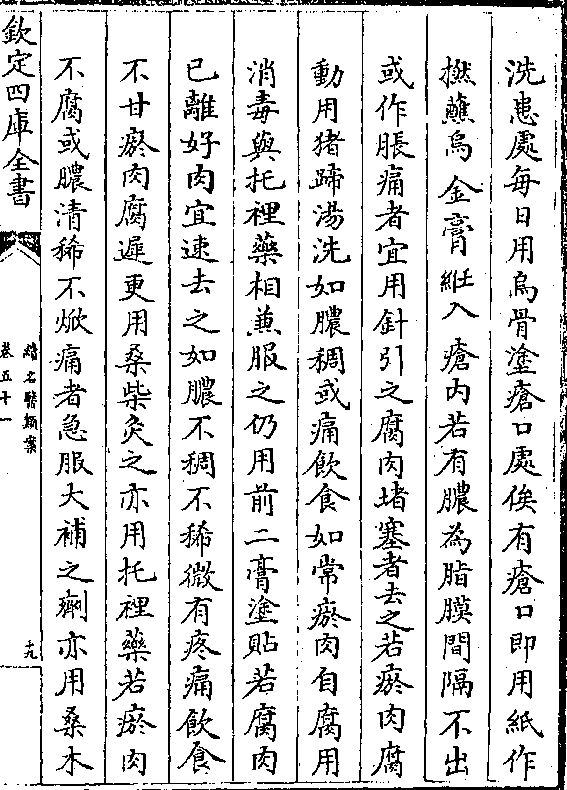 洗患處每日用烏骨塗瘡口處俟有瘡口即用紙作
撚蘸烏金膏絍入瘡内若有膿為脂膜間隔不出
或作脹痛者宜用針引之腐肉堵塞者去之若瘀肉腐
動用猪蹄湯洗如膿稠或痛飲食如常瘀肉自腐用
消毒與托裡藥相兼服之仍用前二膏塗貼若腐肉
已離好肉宜速去之如膿不稠不稀微有疼痛飲食
不甘瘀肉腐遲更用桑柴灸之亦用托裡藥若瘀肉
不腐或膿清稀不焮痛者急服大補之劑亦用桑木
欽定四庫全書
續名醫類案
卷五十一
十九